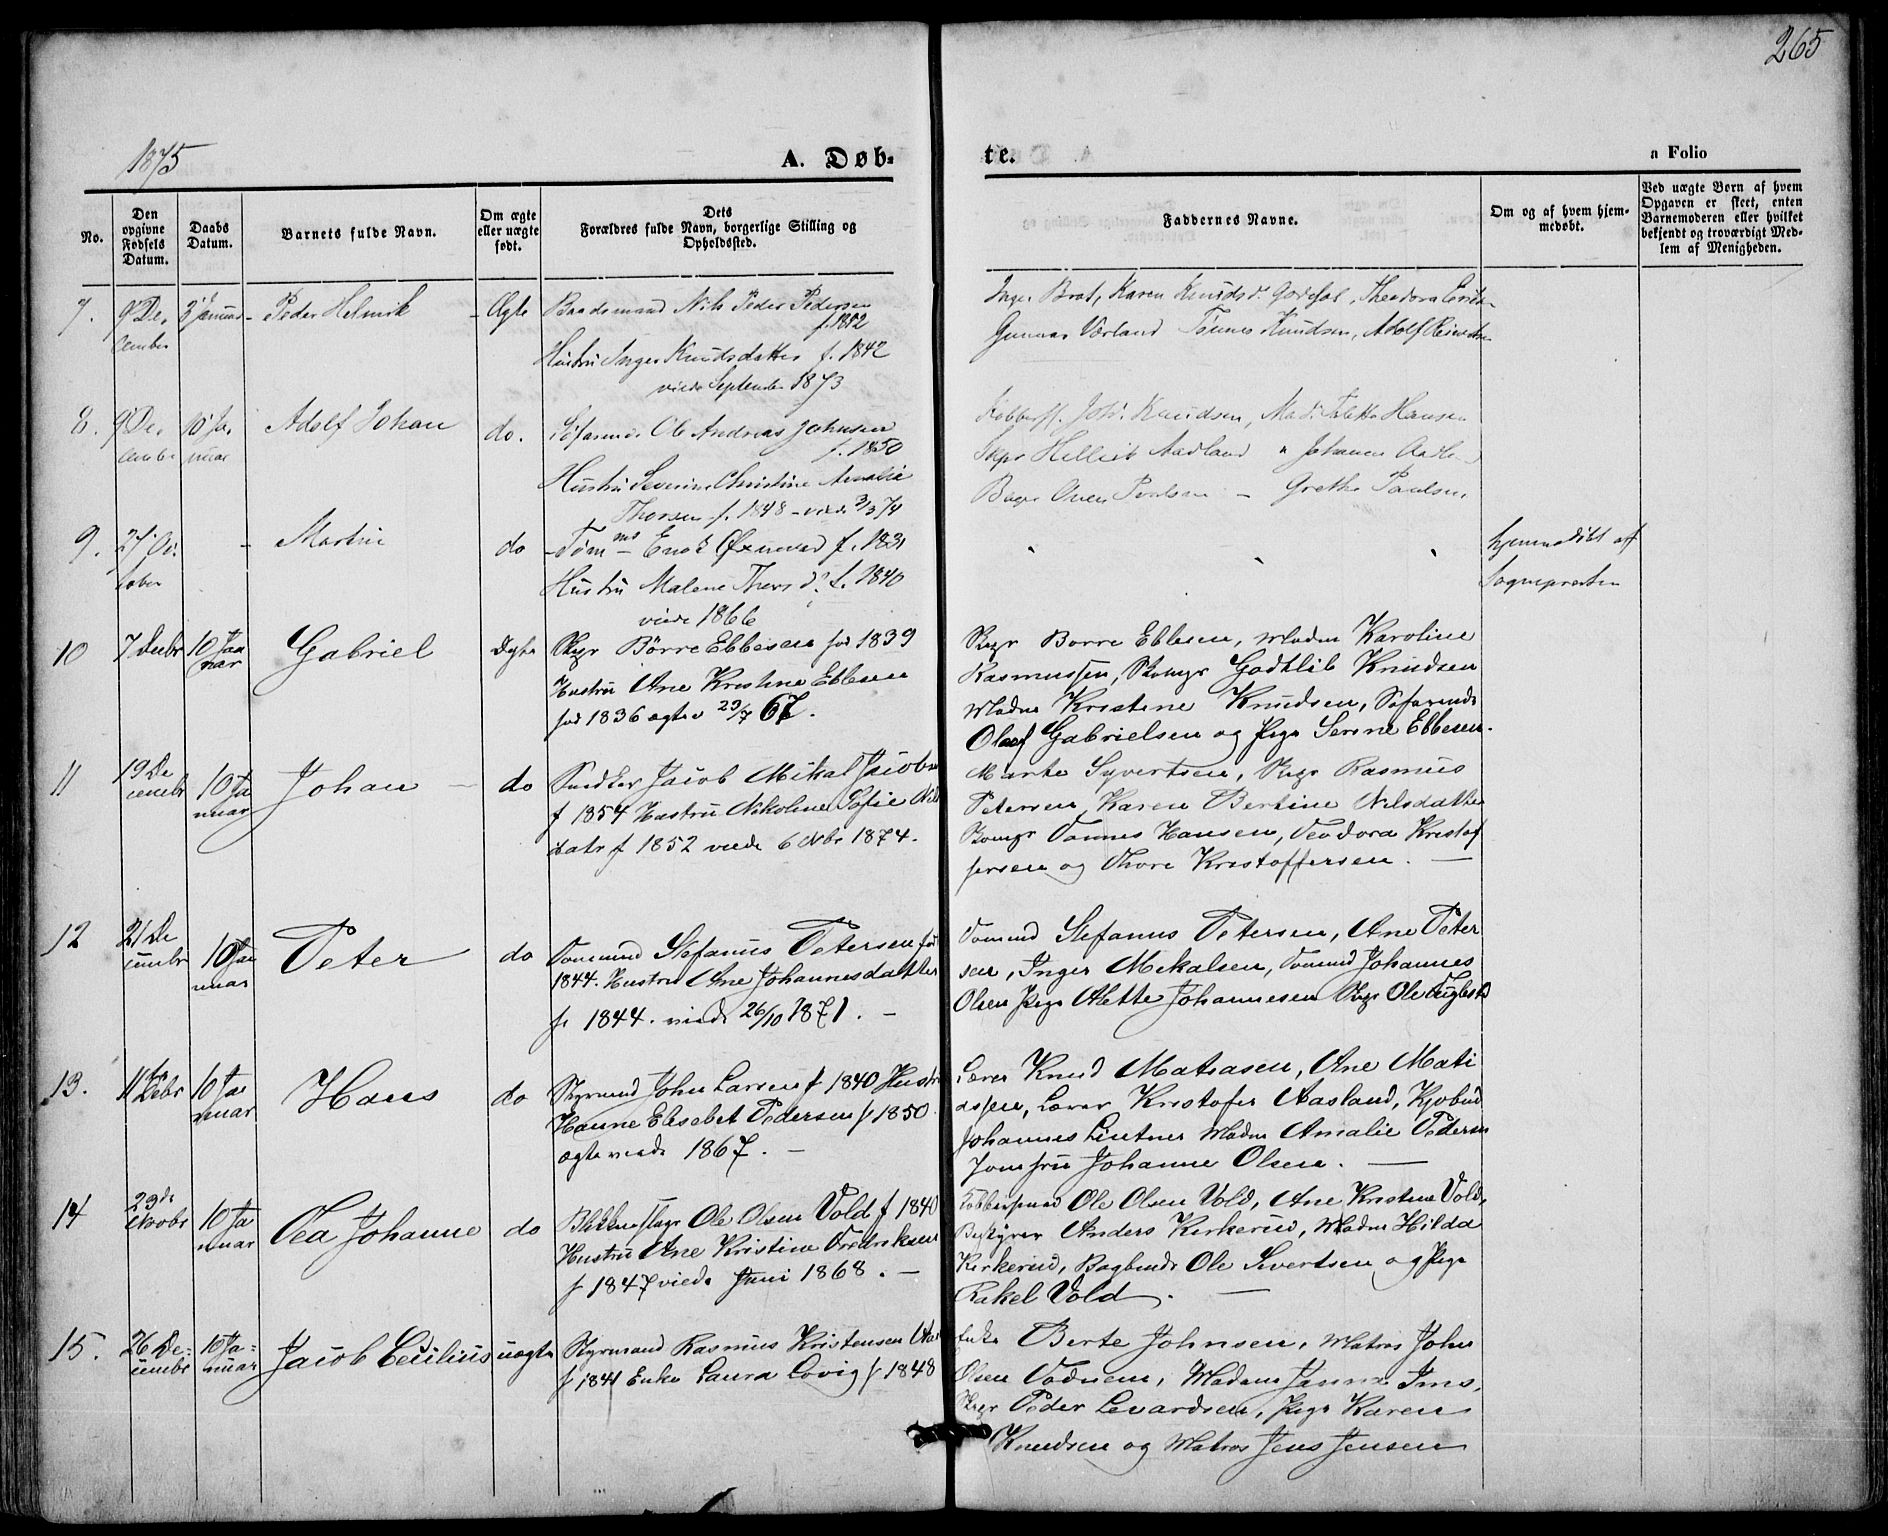 265
1875
A. Døb-
te.
a Folio
No.
Den opgivne Fødsels Datum.
Daabs Datum.
Barnets fulde Navn.
Om ægte eller uægte født.
Dets Forældres fulde Navn, borgerlige Stilling og Opholdssted.
Faddernes Navne.
Om og af hvem hjemmedøbt.
Ved uægte Børn af hvem Opgaven er skeet, enten Barnemoderen eller hvilket bekjendt og troværdigt Medlem af Menigheden.
7.
9 De-
cember
3 Januar
Peder Helmik
Ægte
Baadsmand Nils Peder Pedersen
f. 1852
Hustru Inger Knudsdatter f. 1842
viede September 1873
Inger Brat, Karen Knudsd.
GunnarVærland Tønnes Knudsen, Adolf
8.
9 De-
cember
10 Ja-
nuar
Adolf Johan
do.
Søfarende Ole Andreas Johnsen
f. 1850
Hustru Severine Christine Amalie
Thorsen f. 1848 - viede 3/3 74
Knudsen, Mad. Hansen
Skpr Aadland " Johanne
Paulsen - Grethe Paulsen
9.
27 Oc-
tober
-
Martin
do
Tømms Enok Øxnevad f. 1831
Hustru Malene Thors d. f. 1840
viede 1866
hjemmedøbt af
Sognepresten
10
7 Decbr
10 Jan
nuar
Gabriel
Ægte
Skpr Børre Ebbesen fød 1839
Hustru Ane Kristine Ebbesen
fød 1836 ægtev 23/7 67.
Skpr Borre Ebbesen, Madm Karoline
Rasmussen, Skomgr Godtlib Knudsen
Madm Kristine Knudsen, Søfarende
Olaf Gabrielsen og Pige Serine Ebbesen.
11
19 De
cembr
10 Ja
nuar
Johan
do
Snedker Jacob Mikal Jacobsen
f 1854 Hustru Nikoline Sofie Nils
datr f 1852 viede 6 Nbr 1874.
Marte Syvertsen, Skpr Rasmus
Petersen, Karen Bertine Nilsdatter
Skomgr Tønnes Hansen, Teodora Kristof
fersen og Thore Kristoffersen.
12
21 De
cembr
10 Jan
nuar
Peter
do
Tømmand Stefanus Petersen fød
1844. Hustru Ane Johannesdatter
f. 1844. viede 26/10 1871.
Tømmd Stefanus Petersen, Ane Peter
sen, Inger Mikalsen, Tømmd Johannes
Olsen Pige Alette Johannesen Skpr Ole Fuglestd
13.
11 Decbr
10 Ja
nuar
Hans
do
Styrmnd John Larsen f 1840 Hustr
Hanne Elisabet Pedersen f 1850.
ægteviede 1867.
Lærer Knud Matiasen, Ane Mati
assen, Lærer Kristofer Aasland, Kjøbmd
Johannes Lintner Madm Amalie Pedersn
Jomfru Johanne Olsen.
14
23de
Decbr
10 Ja
nuar
Tea Johanne
do
Blikkenslagr Ole Olsen Vold f 1840
Hustru Ane Kristine Fredriksen
f 1847 viede Juni 1868.
Ole Olsen Vold, Ane Kristine Vold,
Bestyrer Anders Kirkerud, Madm Hilda
Kirkerud, Bogbindr Ole Sivertsen og Pige
Rakel Vold.
15.
26 De-
cembr
10 Ja-
nuar
Jacob Cecilius
uægte
Styrmand Rasmus Kristensen
f 1841 Enke Laura Lovig f 1848
Enke Berte Johnsen, Matros John
Olsen Todnem, Madam Janna Ims,
Skpr Peder Levardsen, Pige Karen
Knudsen og Matros Jens Jensen